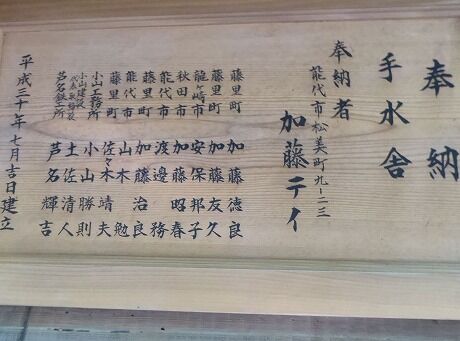 奉納
手水舎
奉納者
能代市松美町九ー二三
加藤テイ
藤里町 加藤徳良
藤里町 加藤友久
龍ヶ崎市 安保邦子
秋田市 加藤昭春
能代市 渡邊務
藤里町 加藤治良
能代市 山木勉
藤里町 佐々木靖夫
小山工務所 小山勝則
小山建設 土佐清人
芦名鉄工所 芦名輝吉
平成三十年七月吉日建立